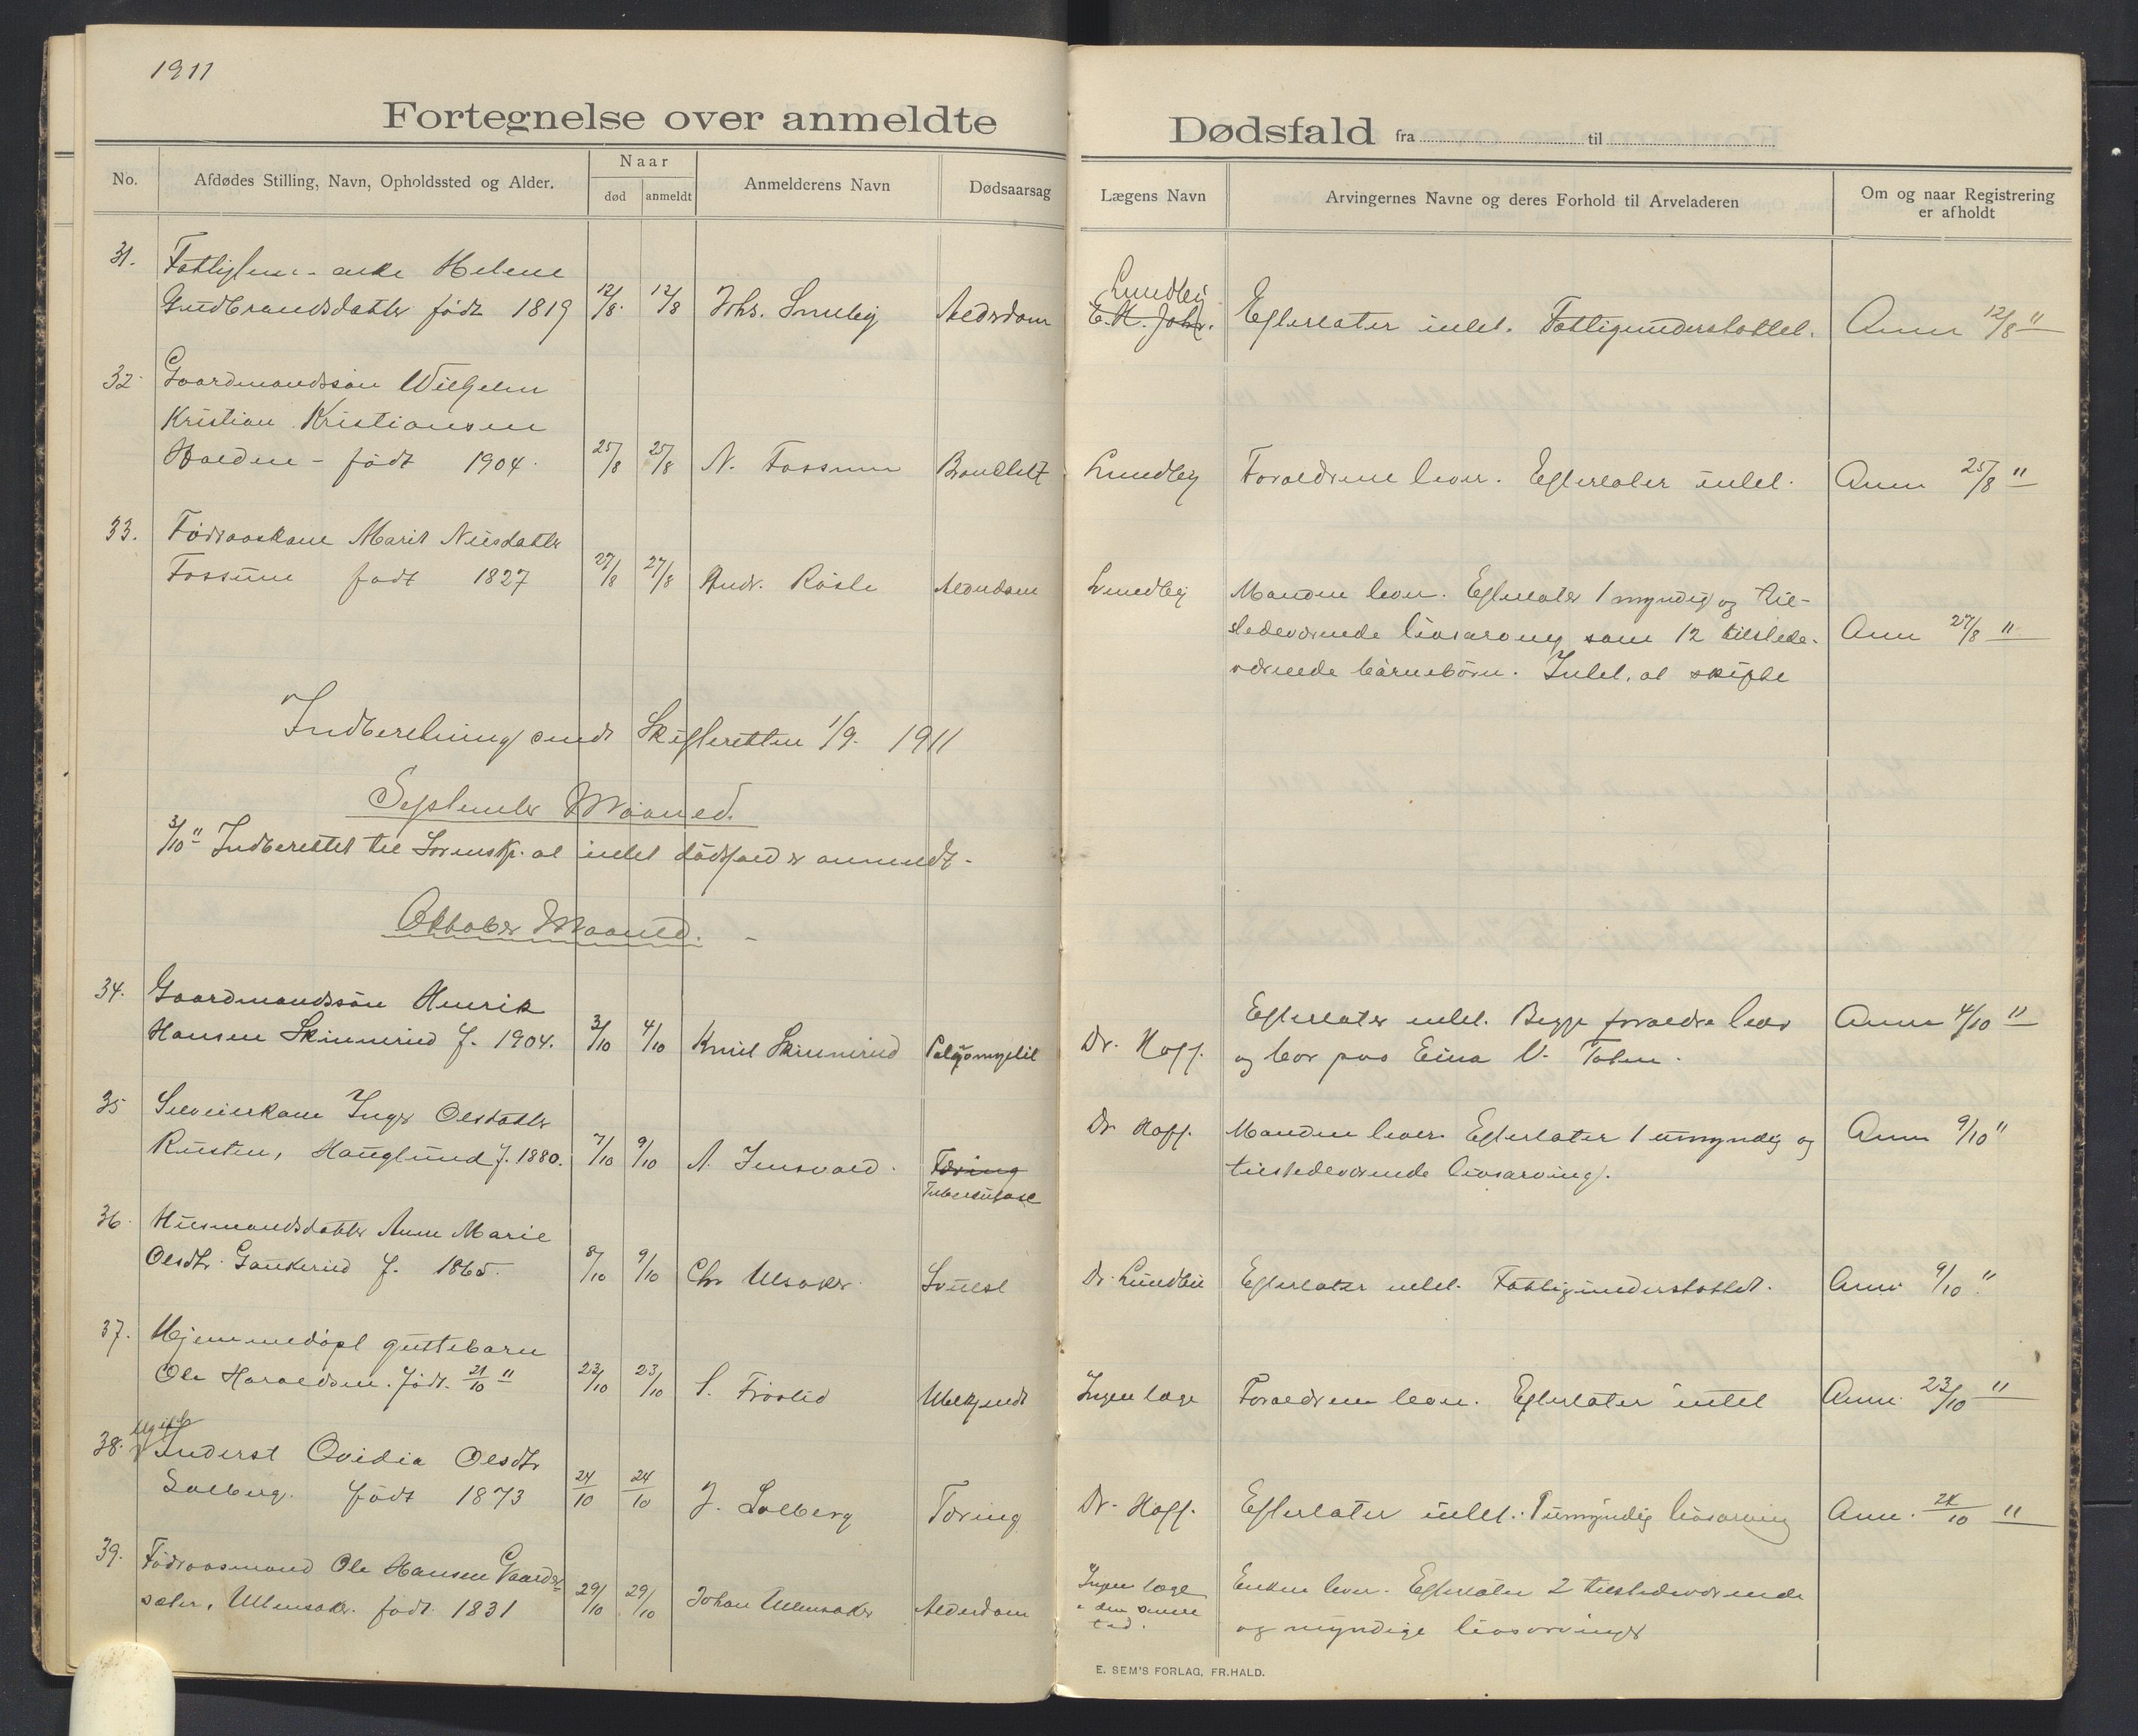 1911
Fortegnelse over anmeldte
Dødsfald fra til
No.
Afdødes Stilling, Navn, Opholdssted og Alder.
Naar
død
anmeldt
Anmelderens Navn
Dødsaarsag
Lægens Navn
Arvingernes Navne og deres Forhold til Arveladeren
Om og naar Registrering
er afholdt
31. Fattiglem - enke Helene
Gudbrandsdatter født 1819 12/8 12/8 Johs. Smeby Alderdom
Lundby
E. H. Johr. Efterlater intet. Fattigunderstøttet. Anm 12/8 11
32. Gaardmandssøn Wilhelm
Kristian Kristiansen
født 1904. 25/8 25/8 N. Fossum
Lundby Forældrene lever. Efterlater intet. Anm 25/8 11
33. Føderaaskone Marit Nilsdatter
Fossum født 1827 27/8 27/8 Andr. Røste Alderdom
Lundby Manden lever. Efterlater 1 myndig og til-
stedeværende livsarving samt 12 tilstede-
værende børnebørn. Intet at skifte
Anm 27/8 11
Indberetning sendt Skifteretten 1/9. 1911
September Maaned.
3/10 11 Indberettet til Sorenskr. at intet dødsfald er anmeldt.
Oktober Maaned.
34. Gaardmandssøn Henrik
Hansen Skinnerud f. 1904. 3/10 4/10 Knut Skinnerud Poliomyelit
Dr. Hoff. Efterlater intet. Begge forældre lever
og bor paa Eina V. Toten.
Anm 4/10 11
35 Selveierkone Inger Olsdatter
Rusten, Hauglund f. 1880. 7/10 9/10 A. Jensvold. Tæring
Tuberkulose
Dr Hoff. Manden lever. Efterlater 1 umyndig og
tilstedeværende livsarving.
Anm 9/10 11
36. Husmandsdatter Anne Marie
Olsdtr. Gaukerud f. 1865. 8/10 9/10 Chr Ulsaker. Svulst
Dr. Lundbu Efterlater intet. Fattigunderstøttet. Anm 9/10 11
37. Hjemmedøpt guttebarn
Ole Haraldsen. født. 21/10 11 23/10 23/10 S. Frøslid Ubekjendt
Ingen læge Forældrene lever. Efterlater intet Anm. 23/10 11
38. ugift
Inderst Ovidia Olsdtr
Solberg. født 1873 24/10 24/10 J. Solberg Tæring
Dr. Hoff. Efterlater intet. 1 umyndig livsarving Anm. 24/10 11
39. Føderaasmand Ole Hansen Gaarder-
sæter, Ullensaker. født 1831 29/10 29/10 Johan Ullensaker Alderdom
Ingen læge
i den senere
tid.
Enken lever. Efterlater 2 tilstedeværende
og myndige livsarvinger
E. SEM'S FORLAG, FR.HALD.